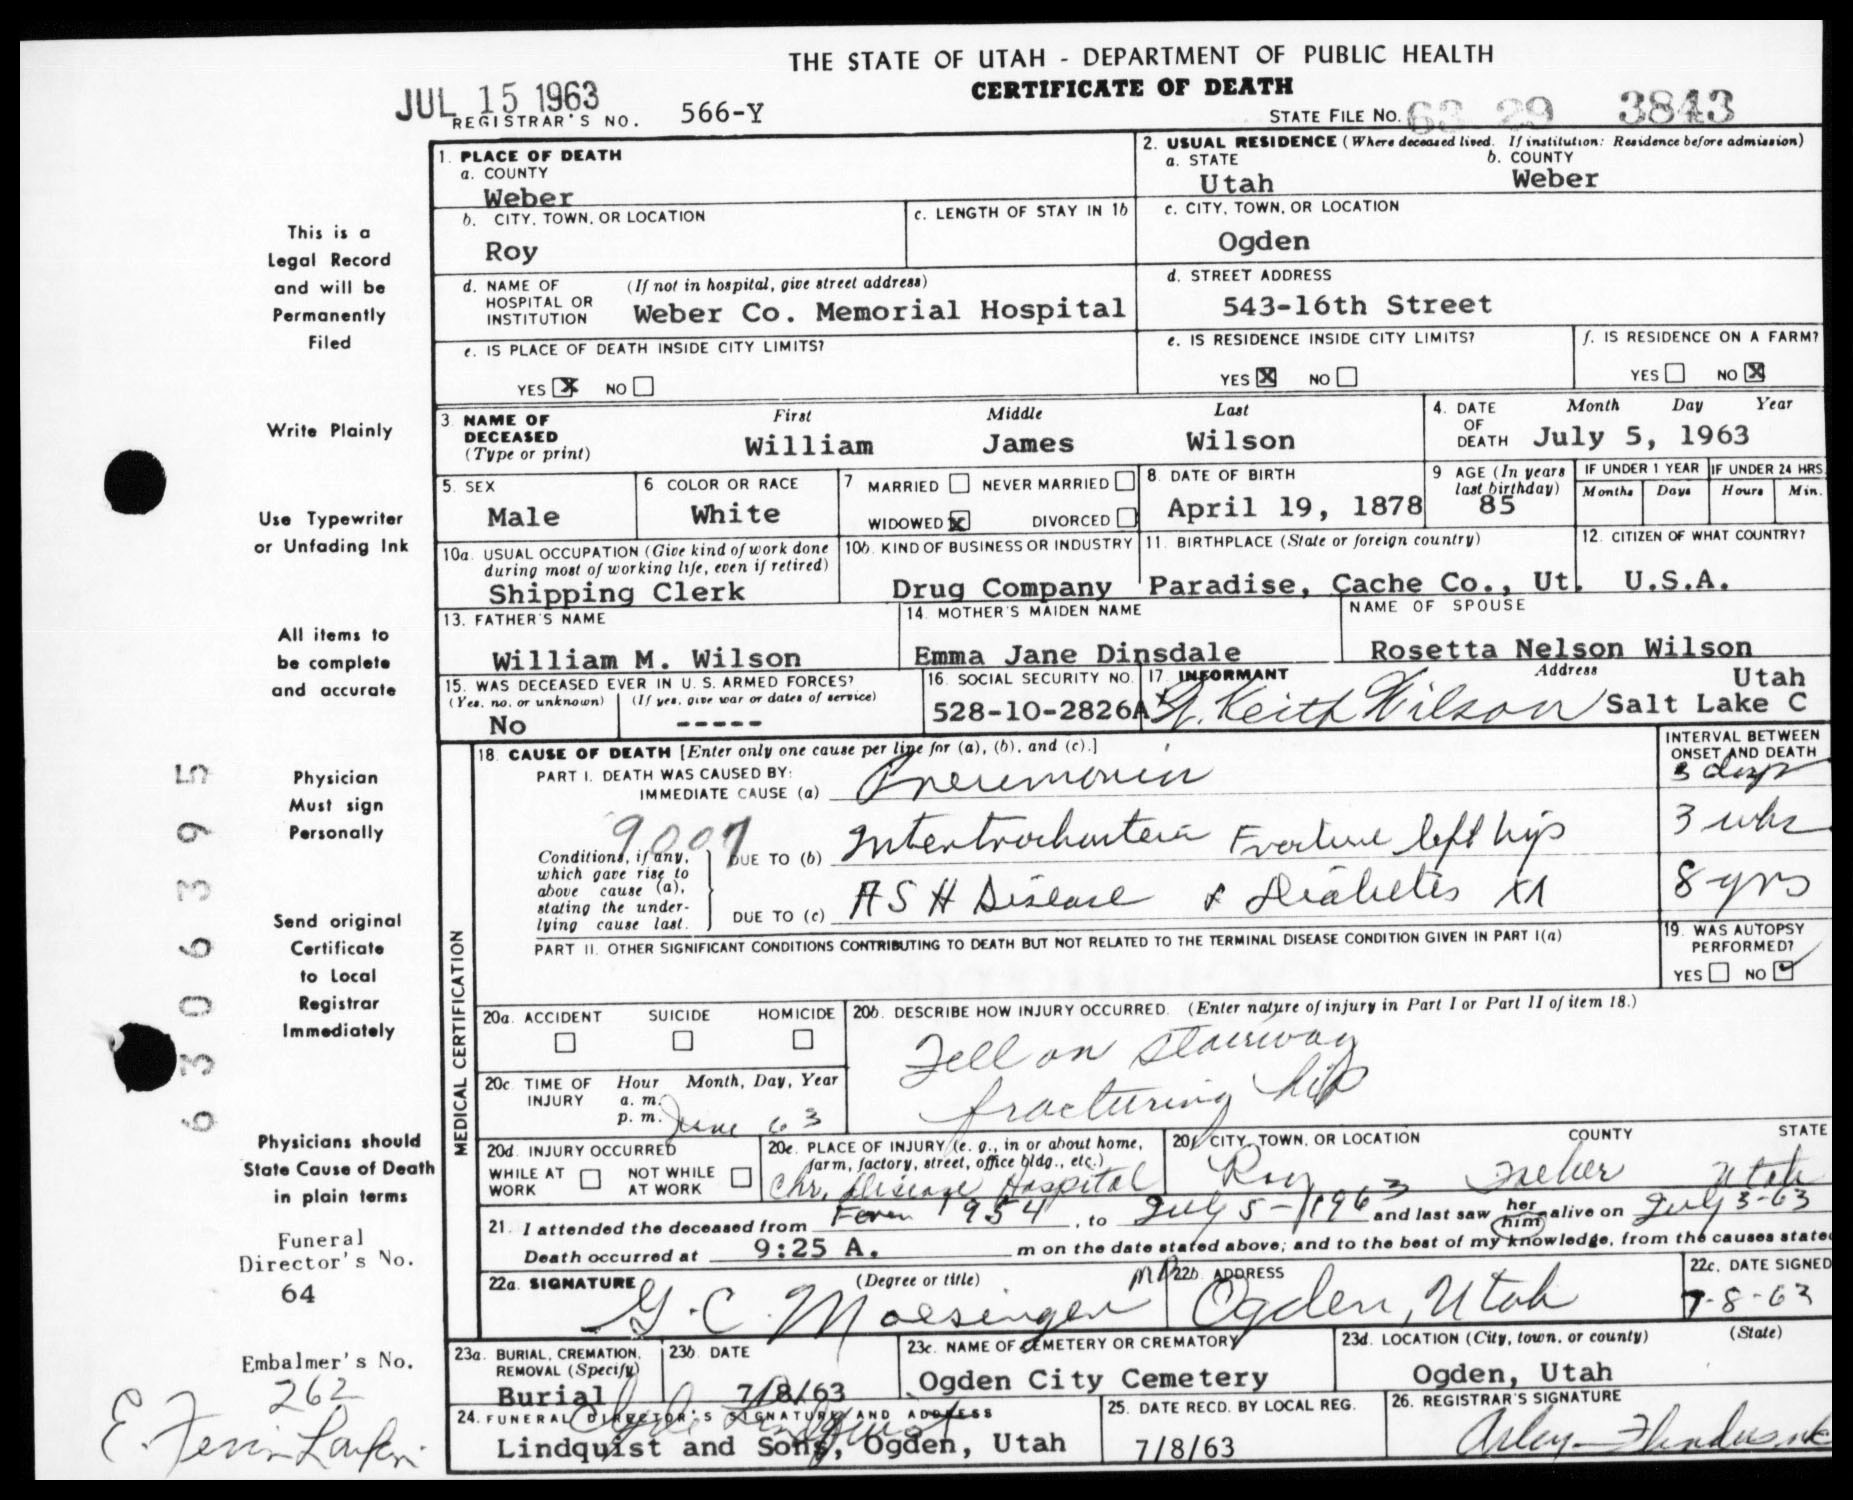 THE STATE OF UTAH - DEPARTMENT OF PUBLIC HEALTH
CERTIFICATE OF DEATH
JUL 15 1963
REGISTRAR'S NO. 566-Y
STATE FILE NO. 63 29 3843
1. PLACE OF DEATH
a. COUNTY
Weber
2. USUAL RESIDENCE (Where deceased lived. If institution: Residence before admission)
a. STATE b. COUNTY
Utah Weber
b. CITY, TOWN, OR LOCATION
Roy
c. LENGTH OF STAY IN 1b
c. CITY, TOWN, OR LOCATION
Ogden
d. NAME OF HOSPITAL OR INSTITUTION (If not in hospital, give street address)
Weber Co. Memorial Hospital
d. STREET ADDRESS
543-16th Street
e. IS PLACE OF DEATH INSIDE CITY LIMITS?
YES X NO
e. IS RESIDENCE INSIDE CITY LIMITS?
YES X NO
f. IS RESIDENCE ON A FARM?
YES NO X
3. NAME OF DECEASED (Type or print) First Middle Last
William James Wilson
4. DATE OF DEATH Month Day Year
July 5, 1963
5. SEX
Male
6 COLOR OR RACE
White
7 MARRIED NEVER MARRIED
WIDOWED X DIVORCED
8. DATE OF BIRTH
April 19, 1878
9 AGE (In years last birthday)
85
IF UNDER 1 YEAR IF UNDER 24 HRS.
Months Days Hours Min.
10a. USUAL OCCUPATION (Give kind of work done during most of working life, even if retired)
Shipping Clerk
10b. KIND OF BUSINESS OR INDUSTRY
Drug Company
11. BIRTHPLACE (State or foreign country)
Paradise, Cache Co., Ut.
12. CITIZEN OF WHAT COUNTRY?
U.S.A.
13. FATHER'S NAME
William M. Wilson
14. MOTHER'S MAIDEN NAME
Emma Jane Dinsdale
NAME OF SPOUSE
Rosetta Nelson Wilson
15. WAS DECEASED EVER IN U.S. ARMED FORCES?
(Yes, no, or unknown) (If yes, give war or dates of service)
No -----
16. SOCIAL SECURITY NO.
528-10-2826A
17. INFORMANT Address
Keith Wilson
Utah
Salt Lake C
18. CAUSE OF DEATH [Enter only one cause per line for (a), (b), and (c).]
INTERVAL BETWEEN ONSET AND DEATH
PART I. DEATH WAS CAUSED BY:
IMMEDIATE CAUSE (a) Pneumonia 3 days
9007
Conditions, if any, which gave rise to above cause (a), stating the underlying cause last.
DUE TO (b) Intertrochanteric Fracture left hip 3 wks
DUE TO (c) A S H Disease & Diabetes 8 yrs
PART II. OTHER SIGNIFICANT CONDITIONS CONTRIBUTING TO DEATH BUT NOT RELATED TO THE TERMINAL DISEASE CONDITION GIVEN IN PART I(a)
19. WAS AUTOPSY PERFORMED?
YES NO ✓
MEDICAL CERTIFICATION
20a. ACCIDENT SUICIDE HOMICIDE
20b. DESCRIBE HOW INJURY OCCURRED. (Enter nature of injury in Part I or Part II of item 18.)
Fell on stairway
fracturing hip
20c. TIME OF INJURY Hour Month, Day, Year
a. m.
p. m. June 63
20d. INJURY OCCURRED
WHILE AT WORK NOT WHILE AT WORK
20e. PLACE OF INJURY (e. g., in or about home, farm, factory, street, office bldg., etc.)
Chr. Disease Hospital
20f CITY, TOWN, OR LOCATION COUNTY STATE
Roy Weber Utah
21. I attended the deceased from 1954, to July 5-1963 and last saw her him alive on July 3-63
Death occurred at 9:25 A. m on the date stated above; and to the best of my knowledge, from the causes stated
22a. SIGNATURE (Degree or title)
G. C. Moesinger MD
22b. ADDRESS
Ogden, Utah
22c. DATE SIGNED
7-8-63
23a. BURIAL, CREMATION, REMOVAL (Specify)
Burial
23b. DATE
7/8/63
23c. NAME OF CEMETERY OR CREMATORY
Ogden City Cemetery
23d. LOCATION (City, town, or county) (State)
Ogden, Utah
24. FUNERAL DIRECTOR'S SIGNATURE AND ADDRESS
Lindquist and Sons, Ogden, Utah
25. DATE RECD. BY LOCAL REG.
7/8/63
26. REGISTRAR'S SIGNATURE
This is a
Legal Record
and will be
Permanently
Filed
Write Plainly
Use Typewriter
or Unfading Ink
All items to
be complete
and accurate
Physician
Must sign
Personally
Send original
Certificate
to Local
Registrar
Immediately
Physicians should
State Cause of Death
in plain terms
Funeral
Director's No.
64
Embalmer's No.
262
6306395